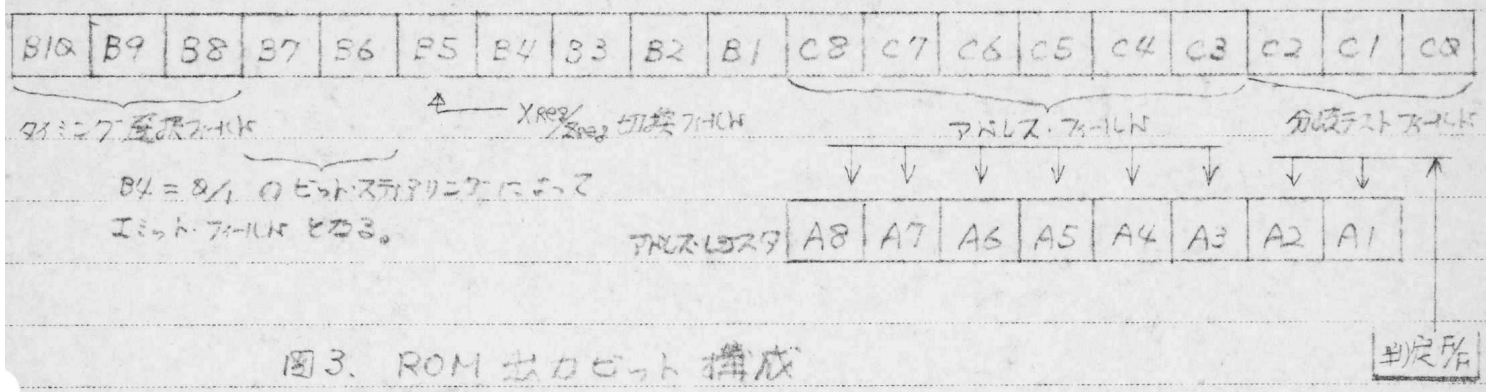 B10 B9 B8 B7 B6 B5 B4 B3 B2 B1 C8 C7 C6 C5 C4 C3 C2 C1 C0
タイミング選択フィールド
XReg/ZReg 切換フィールド
アドレス・フィールド
分岐テストフィールド
B4=0/1 のビット・スティアリングによって
エミット・フィールドとなる。
アドレス・レジスタ A8 A7 A6 A5 A4 A3 A2 A1
判定F/F
図3. ROM 出力ビット構成